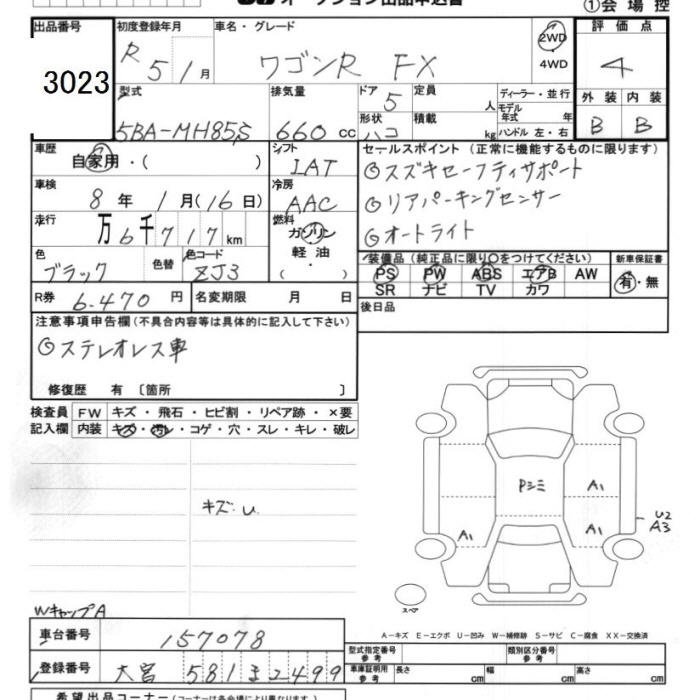 ①会場控
出品番号
3023
初度登録年月
R 5/1月
車名・グレード
ワゴンR FX
2WD
4WD
評価点
4
外装 内装
B B
型式
5BA-MH85S
排気量
660 cc
ドア 5
形状 ハコ
定員 人
積載 kg
ディーラー・並行
モデル年式 年
ハンドル 左・右
車歴
自家用・( )
車検
8年 1月(16日)
走行
万6千717km
色
ブラック
色替
色コード
ZJ3
シフト
IAT
冷房
AAC
燃料
ガソリン
軽油
・
( )
セールスポイント (正常に機能するものに限ります)
◎スズキセーフティサポート
◎リアパーキングセンサー
◎オートライト
装備品(純正品に限り○をつけてください)
PS PW ABS エアB AW
SR ナビ TV カワ
新車保証書
有・無
R券 6.470円
名変期限 月 日
後日品
注意事項申告欄(不具合内容等は具体的に記入して下さい)
◎ステレオレス車
修復歴 有 〔箇所 〕
検査員 FW キズ・飛石・ヒビ割・リペア跡・×要
記入欄 内装 キズ・汚レ・コゲ・穴・スレ・キレ・破レ
キズ:U.
Pシミ
A1
A1
A1
U2
A3
スペア
WキャップA
車台番号 157078
登録番号 大宮 581 ま2499
A-キズ E-エクボ U-凹み W-補修跡 S-サビ C-腐食 XX-交換済
型式指定番号 参考
類別区分番号 参考
車庫証明用 参考
長さ cm 幅 cm 高さ cm
希望出品コーナー